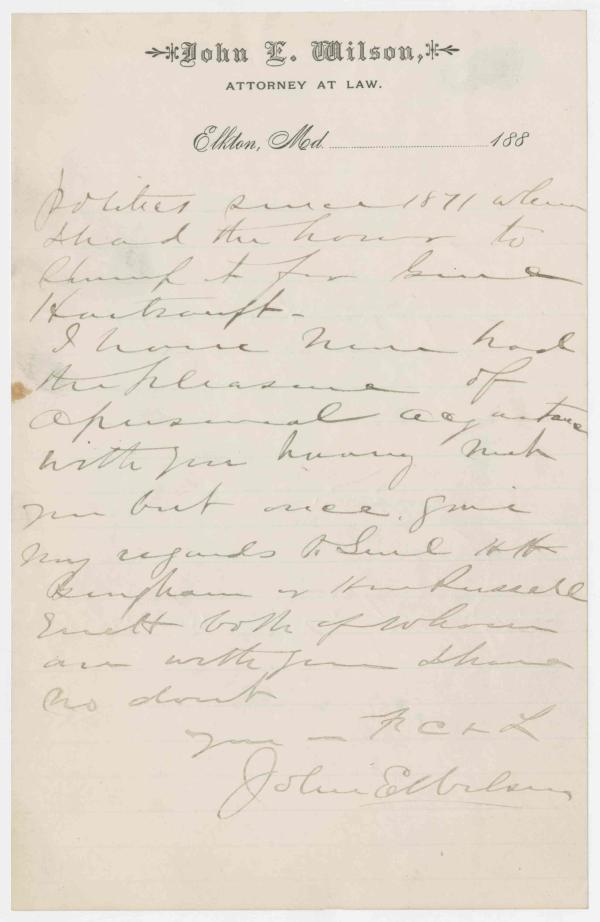 John E. Wilson,
ATTORNEY AT LAW.
Elkton, Md. 188
Politics since 1871 when
I had the honor to
stump it for Genl
Hartranft -
I have never had
the pleasure of
a personal acquaintance
with you having met
you but once. Give
my regards to Genl H H
Bingham & Hon Russell
Errett both of whom
are with you I have
no doubt
Your — F C & L
John E Wilson